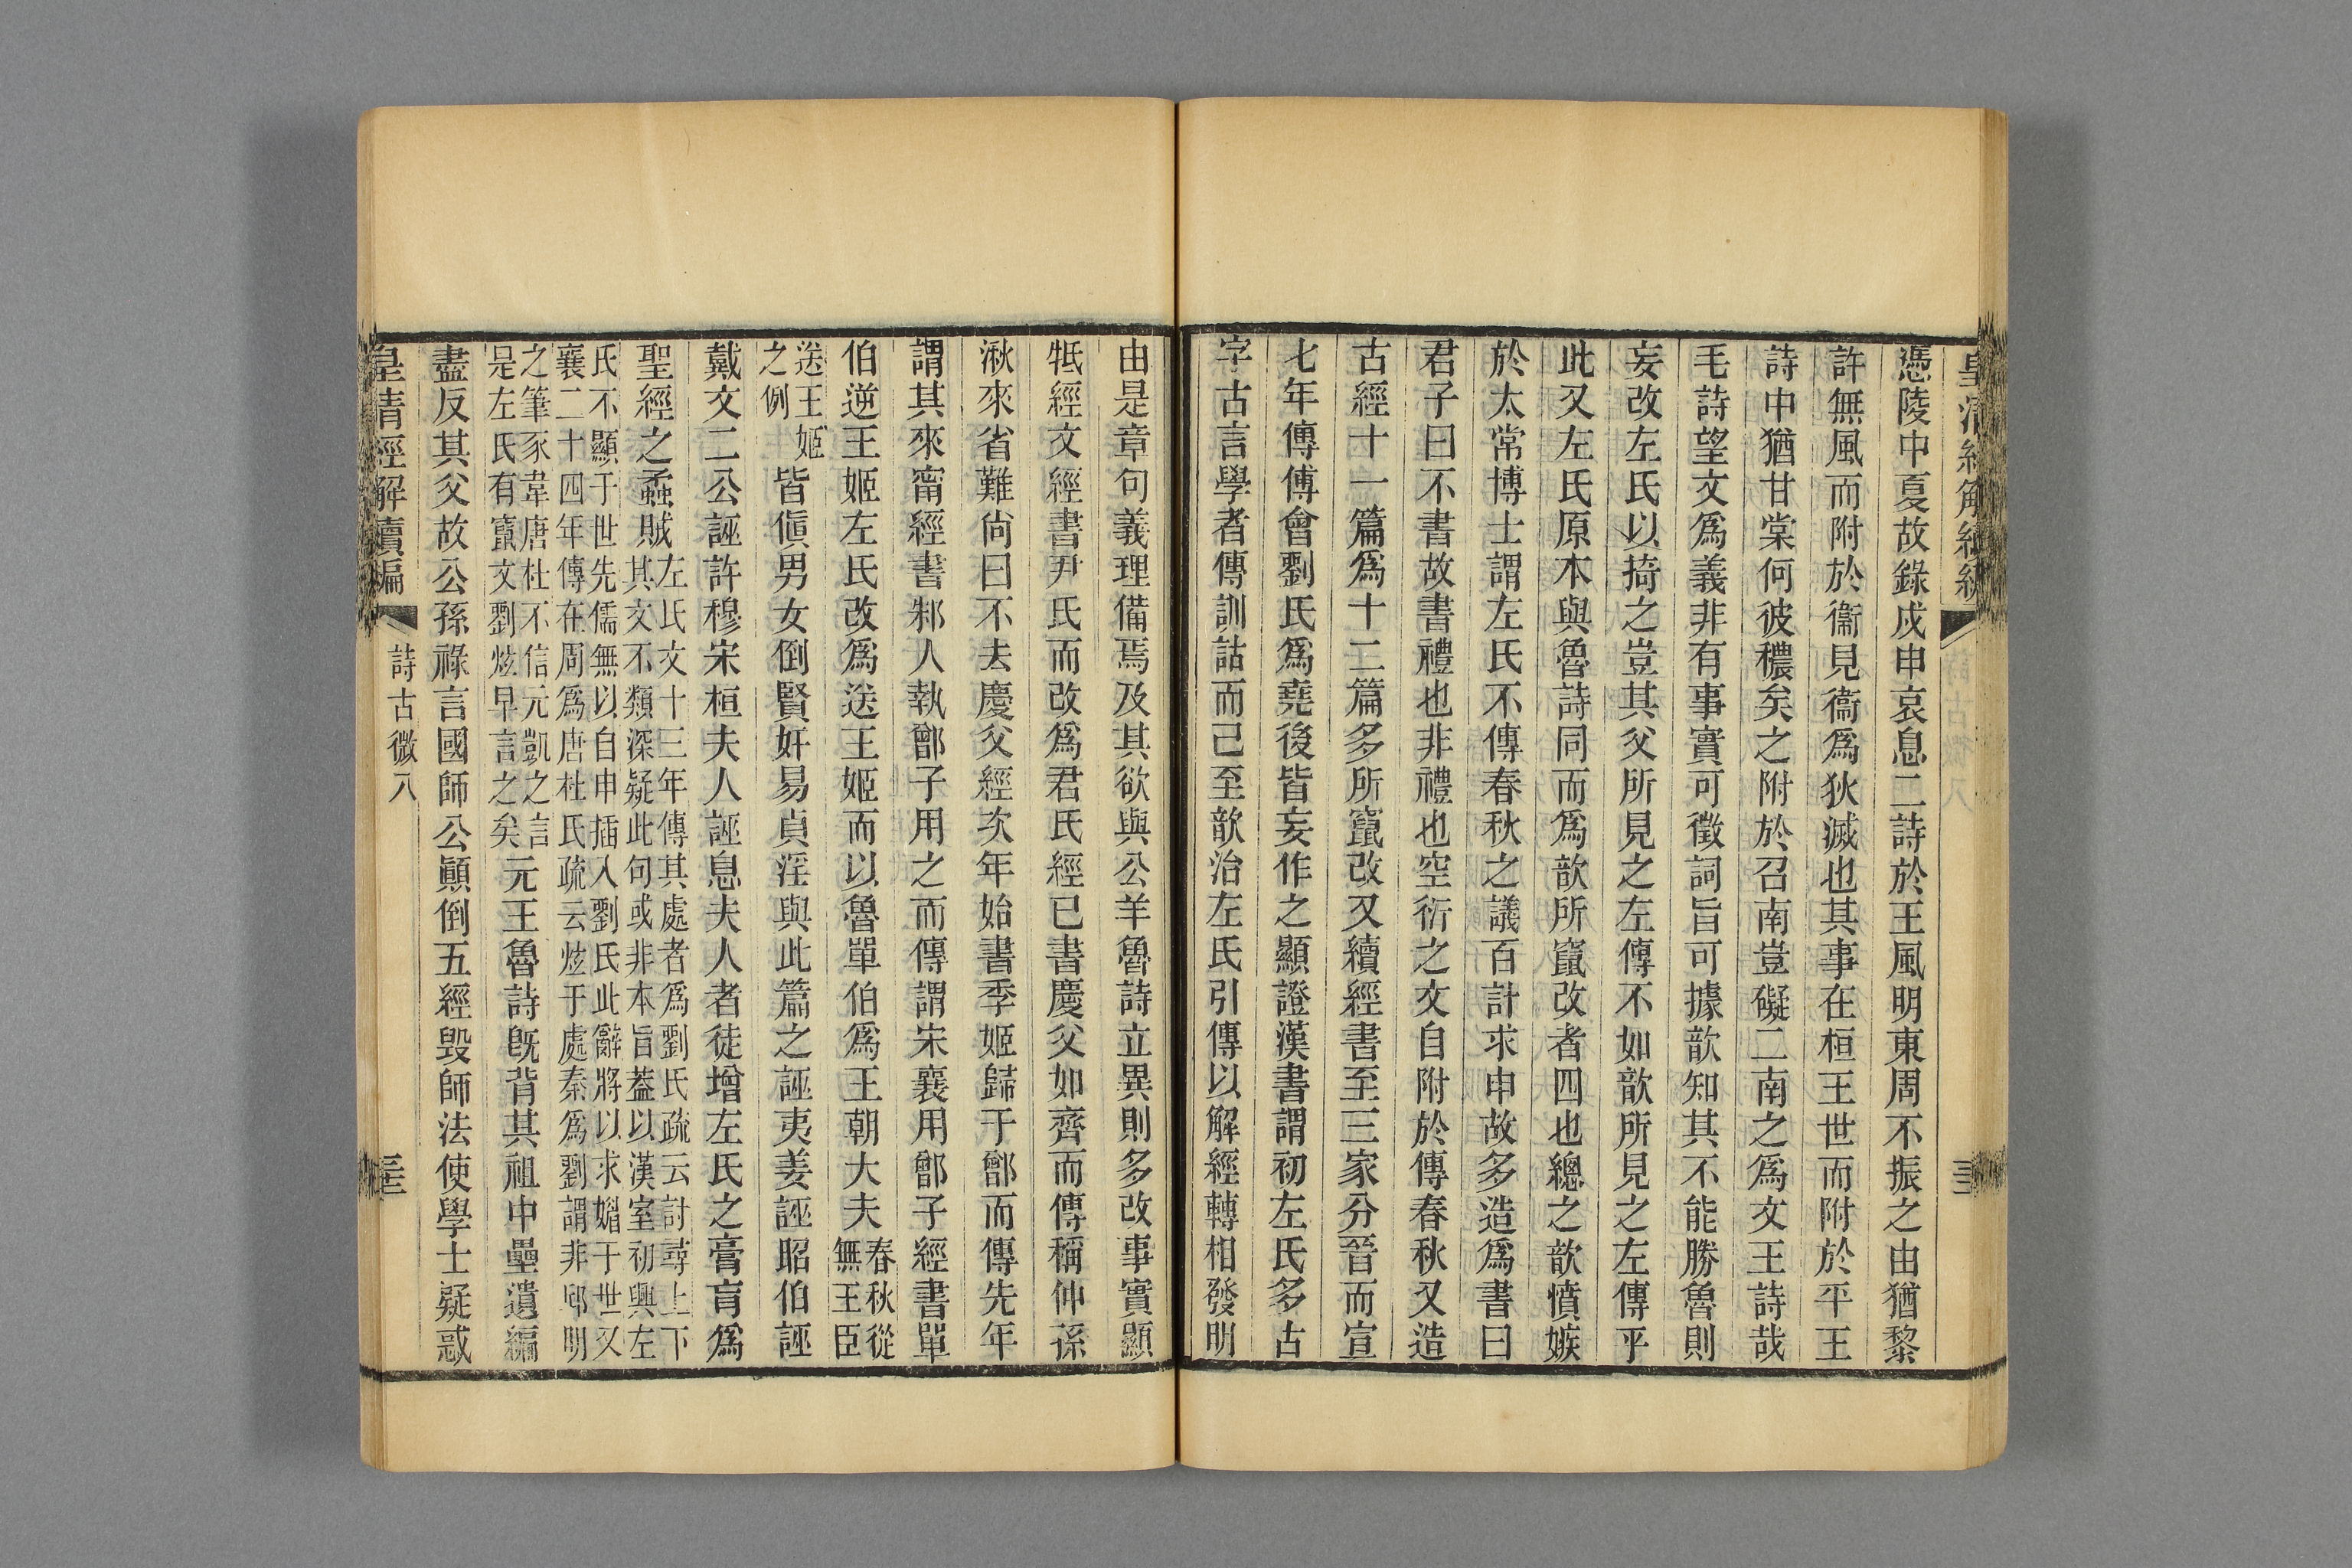 皇清經解續編
憑陵中夏故錄戍申哀息二詩於王風明東周不振之由猶黎
許無風而附於衞見衞爲狄滅也其事在桓王世而附於平王
詩中猶甘棠何彼穠矣之附於召南豈礙二南之爲文王詩哉
毛詩望文爲義非有事實可徵詞旨可據歆知其不能勝魯則
妄改左氏以掎之豈其父所見之左傳不如歆所見之左傳乎
此又左氏原本與魯詩同而爲歆所竄改者四也總之歆憤嫉
於太常博士謂左氏不傳春秋之議百計求申故多造爲書曰
君子曰不書故書禮也非禮也空衍之文自附於傳春秋又造
古經十一篇爲十二篇多所竄改又續經書至三家分晉而宣
七年傳傅會劉氏爲堯後皆妄作之顯證漢書謂初左氏多古
字古言學者傳訓詁而己至歆治左氏引傳以解經轉相發明
由是章句義理備焉及其欲與公羊魯詩立異則多改事實顯
牴經文經書尹氏而改爲君氏經已書慶父如齊而傳稱仲孫
湫來省難尙曰不去慶父經次年始書季姬歸于鄫而傳先年
謂其來甯經書邾人執鄫子用之而傳謂宋襄用鄫子經書單
伯逆王姬左氏改爲送王姬而以魯單伯爲王朝大夫春秋從
無王臣
送王姬
之例皆傎男女倒賢奸易貞淫與此篇之誣夷姜誣昭伯誣
戴文二公誣許穆宋桓夫人誣息夫人者徒增左氏之膏肓爲
聖經之蟊賊左氏文十三年傳其處者爲劉氏疏云討尋上下
其文不類深疑此句或非本旨葢以漢室初興左
氏不顯于世先儒無以自申插入劉氏此辭將以求媚于世又
襄二十四年傳在周爲唐杜氏疏云炫于處秦爲劉謂非邱明
之筆豕韋唐杜不信元凱之言
是左氏有竄文劉炫早言之矣元王魯詩旣背其祖中壘遺編
盡反其父故公孫祿言國師公顚倒五經毀師法使學士疑惑
皇清經解續編
詩古微八